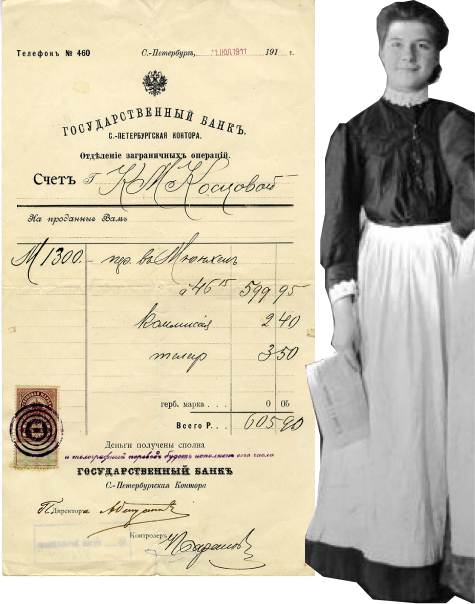 Телефонъ № 460
С.-Петербургъ, 1 ІЮЛ 1911 191 г.
ГОСУДАРСТВЕННЫЙ БАНКЪ.
С.-ПЕТЕРБУРГСКАЯ КОНТОРА.
Отдѣленіе заграничныхъ операцій.
Счетъ Г К М Косцовой
На проданные Вамъ
М 1300.- пр. въ Мюнхенъ
à 46 15 599 95
Коммисія 2 40
телегр 3 50
герб. марка . . . 0 05
Всего Р. . . 605 90
Деньги получены сполна
и телеграфный переводъ будетъ исполненъ сего числа
ГОСУДАРСТВЕННЫЙ БАНКЪ
С.-Петербургская Контора
П. Директора
Контролеръ